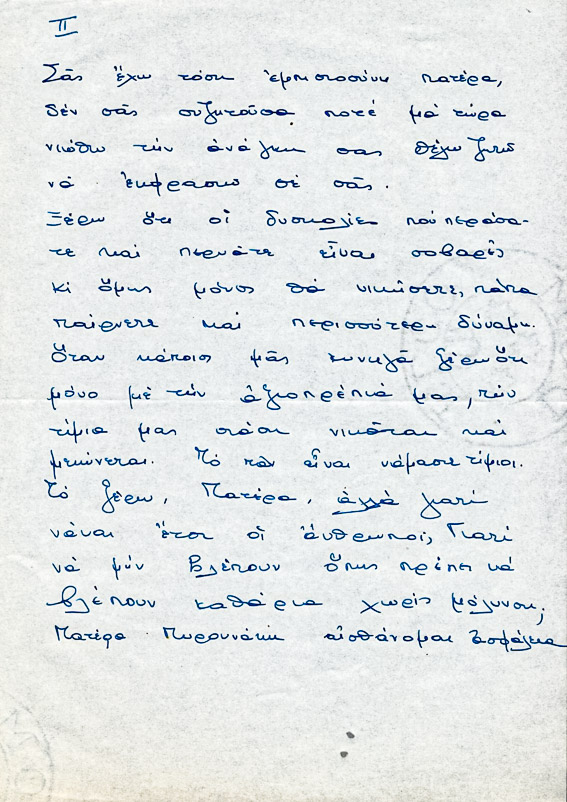 II
Σᾶς ἔχω τόση ἐμπιστοσύνη πατέρα,
δέν σᾶς συζητοῦσα ποτέ μά τώρα
νιώθω τήν ἀνάγκη σας θέλω
νά ἐκφρασω σέ σᾶς.
Ξέρω ὅτι οἱ δυσκολίες πού περάσα-
τε καί περνᾶτε εἶναι σοβαρές
κι ὅμως μόνος θά νικήσετε,
παίρνετε καί περισσότερη δύναμη.
Ὅταν κάποιος μᾶς κυνηγᾶ ξέρω ὅτι
μόνο μέ τήν ἀξιοπρέπιά μας, τήν
τίμια μας στάση νικᾶται καί
Τό πᾶν εἶναι νάμαστε τίμιοι.
Τό ξέρω, Πατέρα, ἀλλά γιατί
νάναι ἔτσι οἱ ἄνθρωποι; Γιατί
νά μήν βλέπουν ὅπως πρέπει νά
βλέπουν καθάρια χωρίς μόλυνση;
Πατέρα αἰσθάνομαι ἀσφάλεια